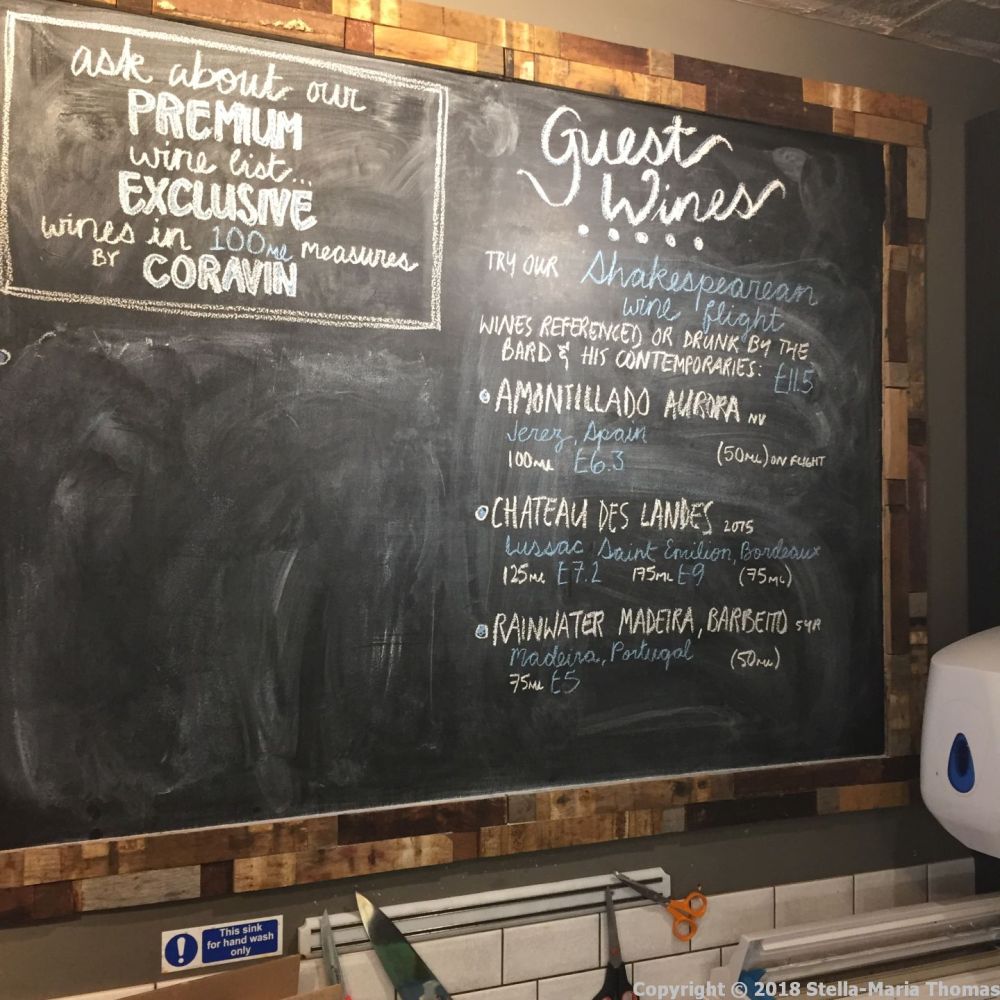 ask about our
PREMIUM
wine list...
EXCLUSIVE
wines in 100ml measures
BY CORAVIN
Guest
Wines
TRY OUR Shakespearean
wine flight
WINES REFERENCED OR DRUNK BY THE
BARD & HIS CONTEMPORARIES: £11.5
AMONTILLADO AURORA NV
Jerez, Spain
100ML £6.3 (50ML) ON FLIGHT
CHATEAU DES LANDES 2015
Lussac Saint Emilion, Bordeaux
125ML £7.2 175ML £9 (75ML)
RAINWATER MADEIRA, BARBEITO 5YR
Madeira, Portugal (50ML)
75ML £5
This sink
for hand wash
only
Copyright © 2018 Stella-Maria Thomas